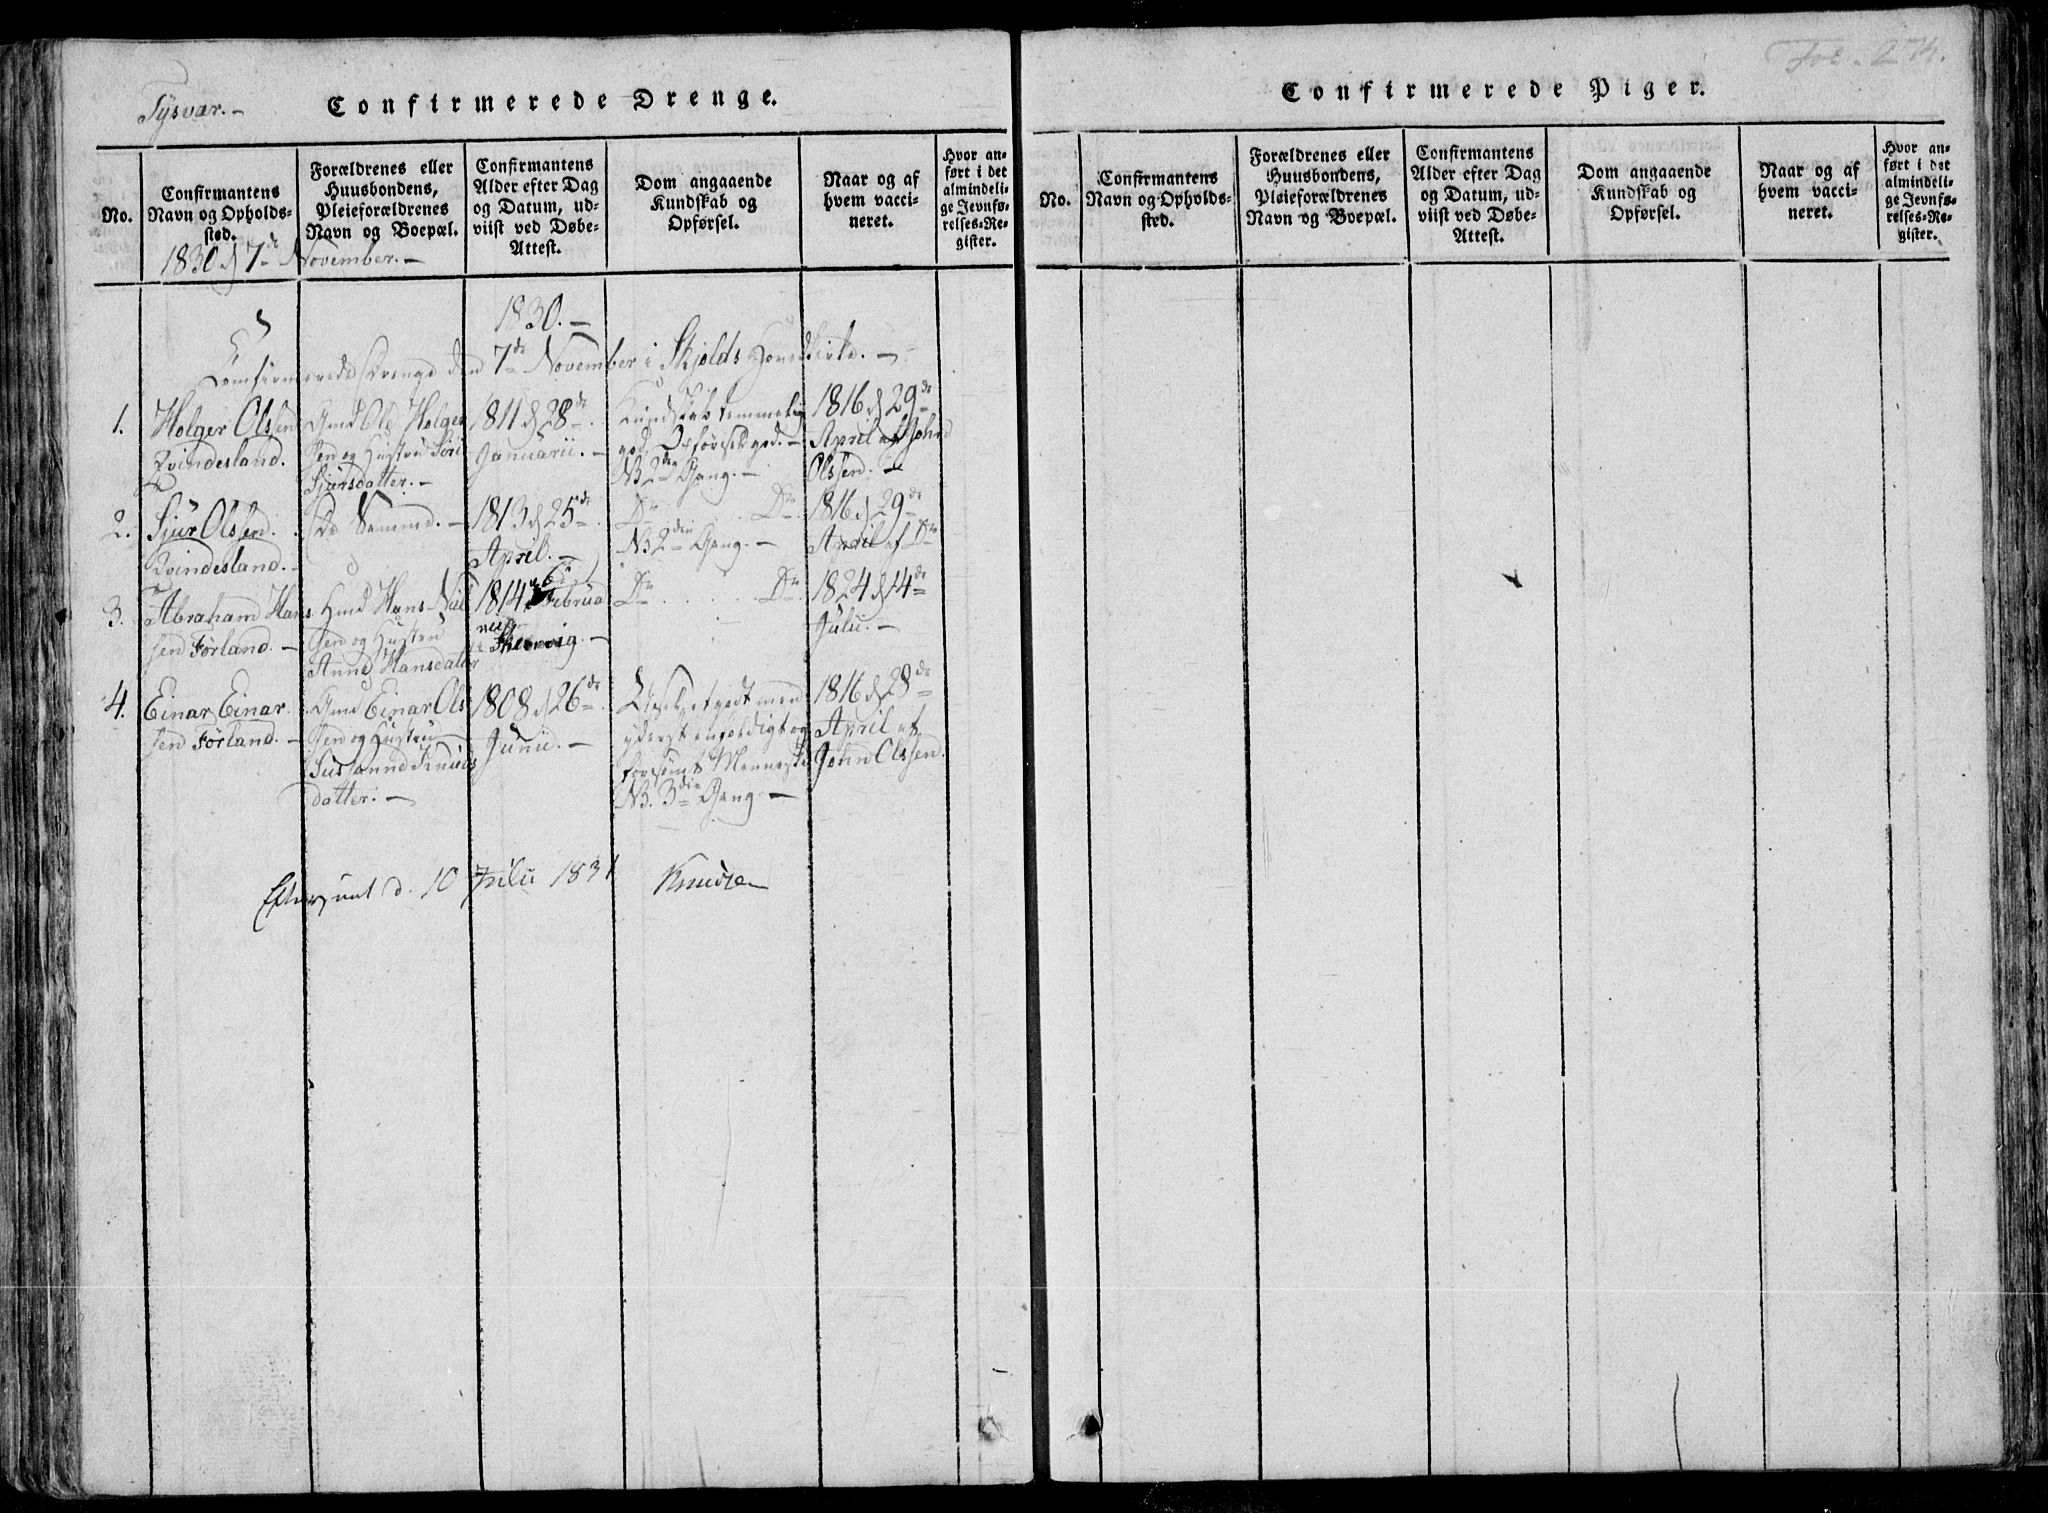 Tysvær.-
Confirmerede Drenge.
No.
Confirmantens
Navn og Opholds-
sted.
Forældrenes eller
Huusbondens,
Pleieforældrenes
Navn og Boepæl.
Confirmantens
Alder efter Dag
og Datum, ud-
viist ved Døbe-
Attest.
Dom angaaende
Kundskab og
Opførsel.
Naar og af
hvem vacci-
neret.
Hvor an-
ført i det
almindeli-
ge Jevnfø-
relses-Re-
gister.
1830 d 7de November.-
1830.-
Confirmerede Drenge den 7de November i Skjolds Hovedkirke.-
1.
Holger Olssen
Qvindesland.
Gmd Ole Holger
sen og Hustru Siri
Sjursdatter.-
1811 d 28de
Januarii.-
Kundskab temmelig
god, Opførsel god.-
NB 2den Gang.-
1816 d 29de
April af John
Olssen.-
2.
Sjur Olssen.
Qvindesland.-
De Samme.-
1813 d 25de
April.-
Do . . . Do
NB 2den Gang.-
1816 d 29de
April af Do
3.
Abraham Han
sen Førland.-
Hmd Hans Niel
sen og Hustru
Anne Hansdatter
1814 Februa
Do . . . . . Do
1824 d 14de
Julii.-
4.
Einar Einar
sen Førland.-
Gmd Einar Ols
sen og Hustru
Susanne Knuds
datter.-
1808 d 26de
Junii.-
Læser et godt men
yderst enfoldigt og
forsømt Menneske
NB. 3die Gang-
1816 d 28de
April af
John Olssen.
Efterseet d. 10 Julii 1831 Knudsen
Fol. 274.
Confirmerede Piger.
No.
Confirmantens
Navn og Opholds-
sted.
Forældrenes eller
Huusbondens,
Pleieforældrenes
Navn og Boepæl.
Confirmantens
Alder efter Dag
og Datum, ud-
viist ved Døbe-
Attest.
Dom angaaende
Kundskab og
Opførsel.
Naar og af
hvem vacci-
neret.
Hvor an-
ført i det
almindeli-
ge Jevnfø-
relses-Re-
gister.